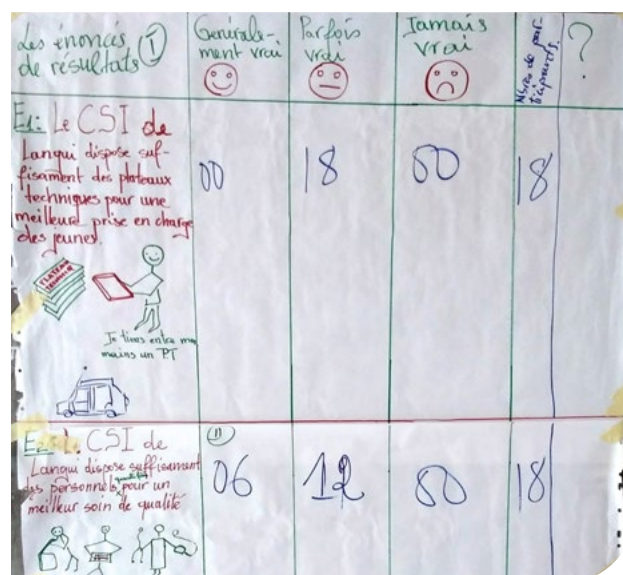 Les énoncés ①
de résultats
Générale-
ment vrai
Parfois
vrai
Jamais
vrai
Nbres de par-
ticipants.
?
E1: Le CSI de
Langui dispose suf-
fisament des plateaux
techniques pour une
meilleure prise en charge
des jeunes.
00
18
00
18
PLATEAU
TECHNIQUE
Je tiens entre mes
mains un PT
E2: Le CSI de
Langui dispose suffisament
des personnels qualifiés pour un
meilleur soin de qualité
⑪
06
12
00
18